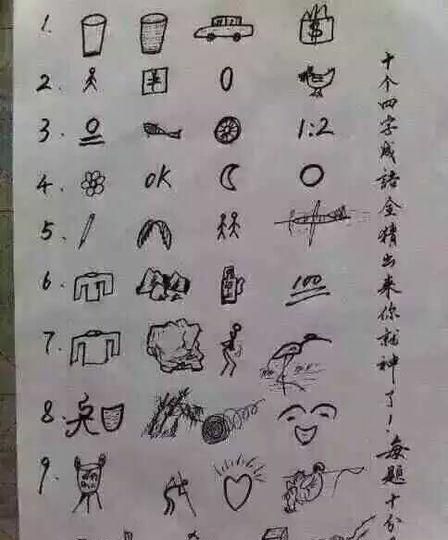 1. $
2.
3. 1:2
4. OK
5.
6. 100
7.
8.
9.
十个四字成語全猜出来你就神了!每題十分